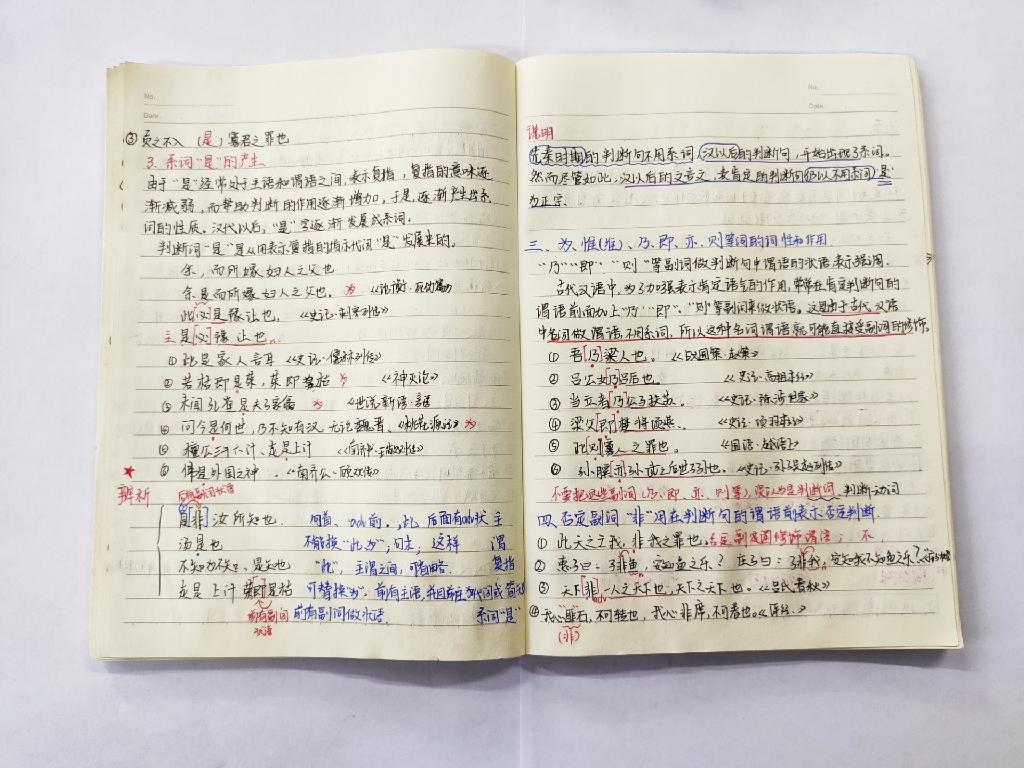 No.
Date.
③ 贡之不入 (是) 寡君之罪也
3. 系词"是"的产生
由于"是"经常处于主语和谓语之间,表示复指,复指的意味逐
渐减弱,而帮助判断的作用逐渐增加,于是,逐渐产生出系
词的性质。汉代以后,"是"字逐渐发展成系词。
判断词"是"是从用表示复指的指示代词"是"发展来的。
余,而所嫁妇人之父也
余是而所嫁妇人之父也。 为 《论衡·死伪篇》
此必是豫让也。 《史记·刺客列传》
是[必]豫让也
① 此是家人言耳 《史记·儒林列传》
② 若枯即是荣,荣即是枯 《神灭论》
③ 不闻孔雀是夫子家禽 为 《世说新语·言语》
④ 问今是何世,乃不知有汉,无论魏晋。 《桃花源记》 为
⑤ 檀公三十六计,走是上计 《南齐书·王敬则传》
⑥ 佛是外国之神。
★ 辨析
后有副词状语
是[非]汝所知也. 句首、adv前。,此 后面有adv状 主
汤是也 不能换"此、为";句末;这样 谓
不知为不知,是知也 "此",主谓之间,可省略. 复指
走是上计 荣[即]是枯 可替换"为";前有主语,
系词"是"
前有副词状语
前有副词做状语
No.
Date.
说明
先秦时期的判断句不用系词,汉以后的判断句,开始出现了系词。
然而尽管如此,汉以后的文言文,表肯定的判断句仍以不用系词"是"
为正宗.
三、为、惟(维)、乃、即、亦、则等词的词性和作用
"乃""即""则"等副词做判断句中谓语的状语表示强调.
古代汉语中,为了加强表示肯定语气的作用,常常在肯定判断句的
谓语前面加上"乃""即"、"则"等副词来做状语。这是由于古代汉语
中名词做谓语不用系词,所以这种名词谓语就可能直接受副词的修饰。
① 吾[乃]梁人也。 《战国策·赵策》
② 吕公女[乃]吕后也。 《史记·高祖本纪》
③ 当立者[乃]公子扶苏。 《史记·陈涉世家》
④ 梁父[即]楚将项燕. 《史记·项羽本纪》
⑤ 此[则]寡人之罪也. 《国语·越语上》
⑥ 孙膑[亦]孙武之后世子孙也。《史记·孙子吴起列传》
不要把这些副词(乃、即、亦、则等)误认为是判断词,判断动词
四、否定副词"非"用在判断句的谓语前表示否定判断.
① 此天之亡我,非我之罪也.否定副词修饰谓语; 不.
② 惠子曰:子非鱼,安知鱼之乐? 庄子曰:子非我,安知我不知鱼之乐?
③ 天下[非]一人之天下也,天下之天下也。《吕氏春秋》
④ 我心匪石,不可转也,我心非席,不可卷也。《诗经》
(非)